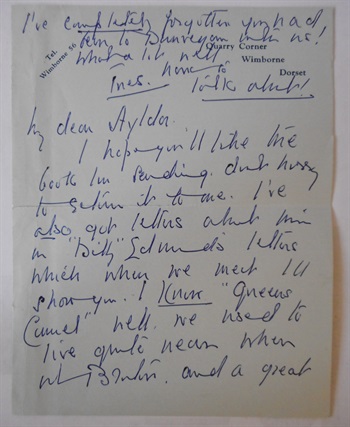 I've completely forgotten you had
been to Dunvegan with us!
What a lot we'll
Tel.
Wimborne 56
Quarry Corner
Wimborne
Dorset
have to
talk about!
Ines.
My dear Aylda.
I hope you'll like the
book I'm sending. don't hurry
to return it to me. I've
also got letters about him
in "Billy" Edmunds letters
which when we meet I'll
show you. I know "Queens
Camel" well. We used to
live quite near when
in and a great